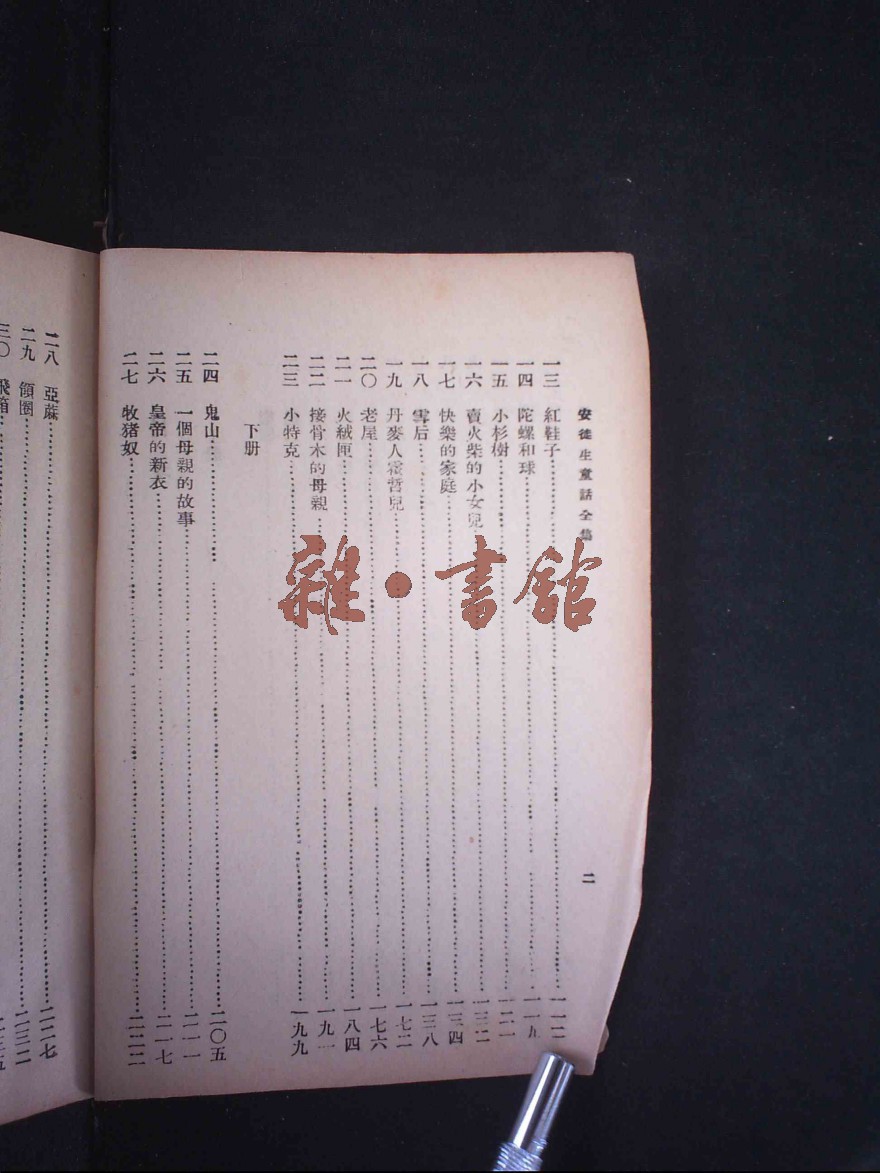 安徒生童話全集
一三 紅鞋子 一一二
一四 陀螺和球 一一九
一五 小杉樹 一二一
一六 賣火柴的小女兒 一三二
一七 快樂的家庭 一三四
一八 雪后 一三八
一九 丹麥人霍哲兒 一七二
二〇 老屋 一七六
二一 火絨匣 一八四
二二 接骨木的母親 一九一
二三 小特克 一九九
下册
二四 鬼山 二〇五
二五 一個母親的故事 二一一
二六 皇帝的新衣 二一七
二七 牧猪奴 二二二
二
二八 亞蔴 二二七
二九 領圈 二三二
三〇 飛箱 二三五
雜·書館